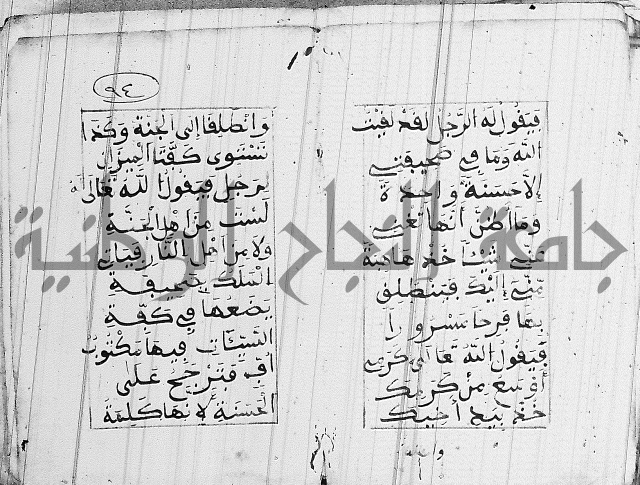 فيقول له الرجل لقد لقيت
الله وما في صحيفتي
إلا حسنة واحدة
وما أظن أنها تغني
عني شيئا خذها هبة
مني إليك فينطلق
بها فرحا مسرورا
فيقول الله تعالى كرمي
أوسع من كرمك
خذ بيد أخيك
وا
٩٤
وانطلقا إلى الجنة وكذا
تستوي كفتا الميزان
لرجل فيقول الله تعالى له
لست من أهل الجنة
ولا من أهل النار فيأتي
الملك بصحيفة
يضعها في كفة
السيئات فيها مكتوب
أف فترجح على
الحسنة لأنها كلمة
جامعة النجاح الوطنية